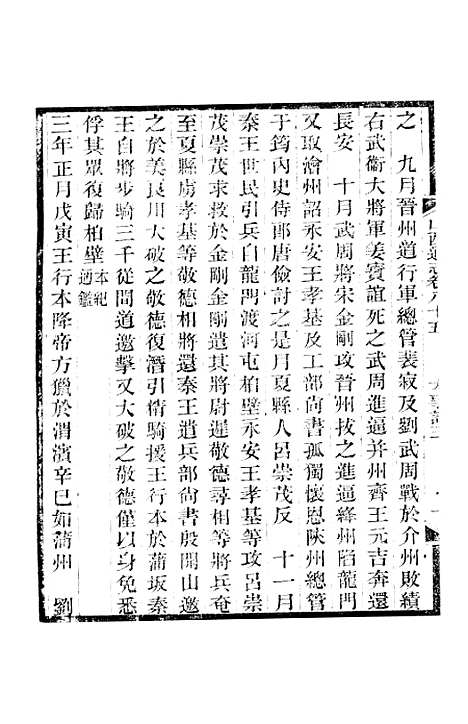 之　九月晉州道行軍總管裴寂及劉武周戰於介州敗績
右武衞大將軍姜寶誼死之武周進逼并州齊王元吉奔還
長安　十月武周將宋金剛攻晉州拔之進逼絳州陷龍門
又取澮州詔永安王孝基及工部尚書孤獨懷恩陝州總管
于筠內史侍郎唐儉討之是月夏縣人呂崇茂反　十一月
秦王世民引兵自龍門渡河屯柏壁永安王孝基等攻呂崇
茂崇茂求救於金剛金剛遣其將尉遲敬德尋相等將兵奄
至夏縣虜孝基等敬德將還秦王遣兵部尚書殷開山邀
之於美良川大破之敬德復潛引精騎援王行本於蒲坂秦
王自將步騎三千從間道邀擊又大破之敬德僅以身免悉
俘其眾復歸柏壁本紀通鑑
三年正月戊寅王行本降帝方獵於渭濱辛巳如蒲州　劉